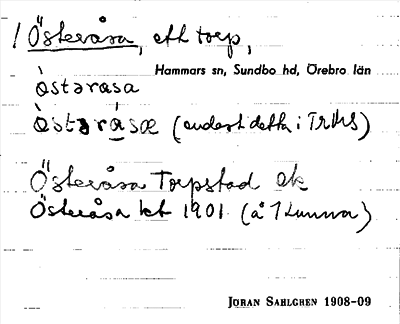 1 Österåsa, ett torp,
Hammars sn, Sundbo hd, Örebro län
ò̀starasa
ò̀starásæ (endast detta i TrHS)
Österåsa Torpstad ek
Österåsa kt 1901 (å Tunna)
JÖRAN SAHLGREN 1908-09